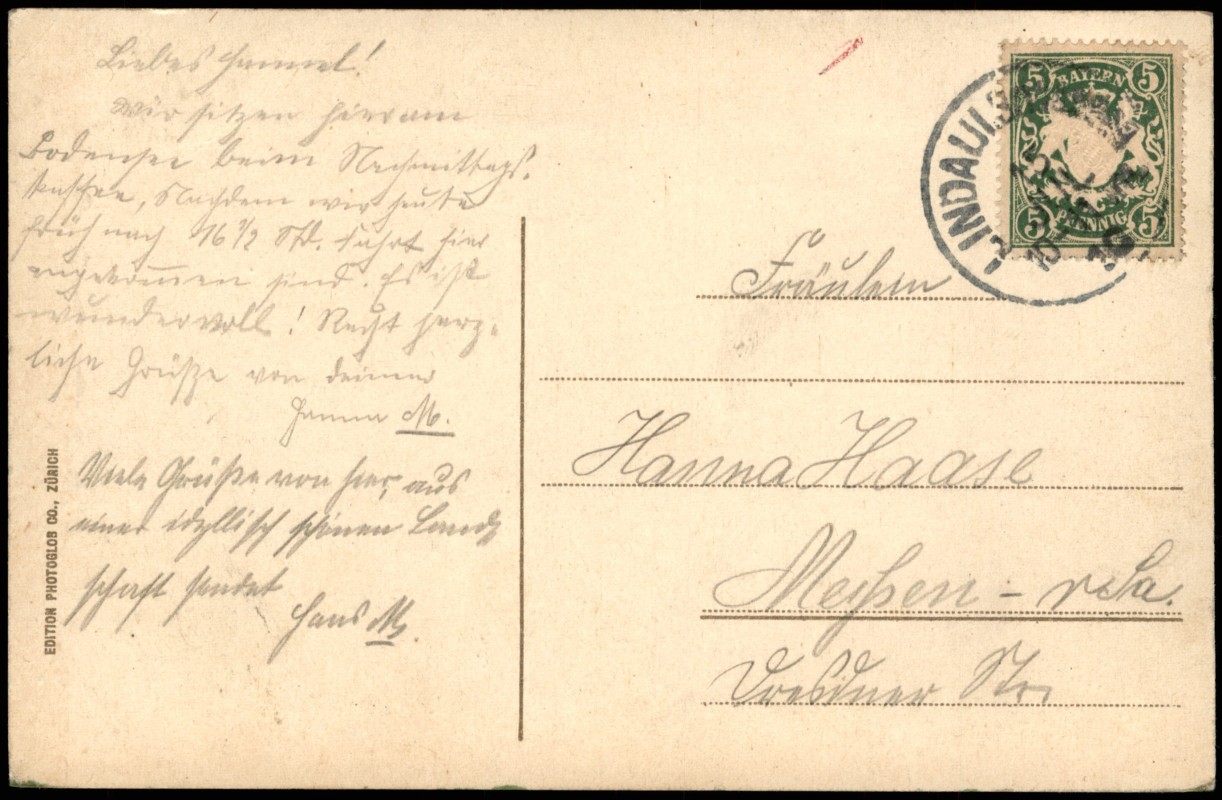 Liebes Hannel!
Wir sitzen hier am
Bodensee beim Nachmittags-
kaffee, Nachdem wir heute
früh nach 16 1/2 Std. Fahrt hier
angekommen sind. Es ist
wundervoll! Recht herz-
liche Grüße von deiner
Hanna M.
Viele Grüße von hier, aus
einer idyllisch schönen Land-
schaft sendet
Hans M.
EDITION PHOTOGLOB CO., ZÜRICH
LINDAU i. B.
5 BAYERN 5
5 PFENNIG 5
Fräulein
Hanna Haase
Meißen - Sa.
Dresdner Str.